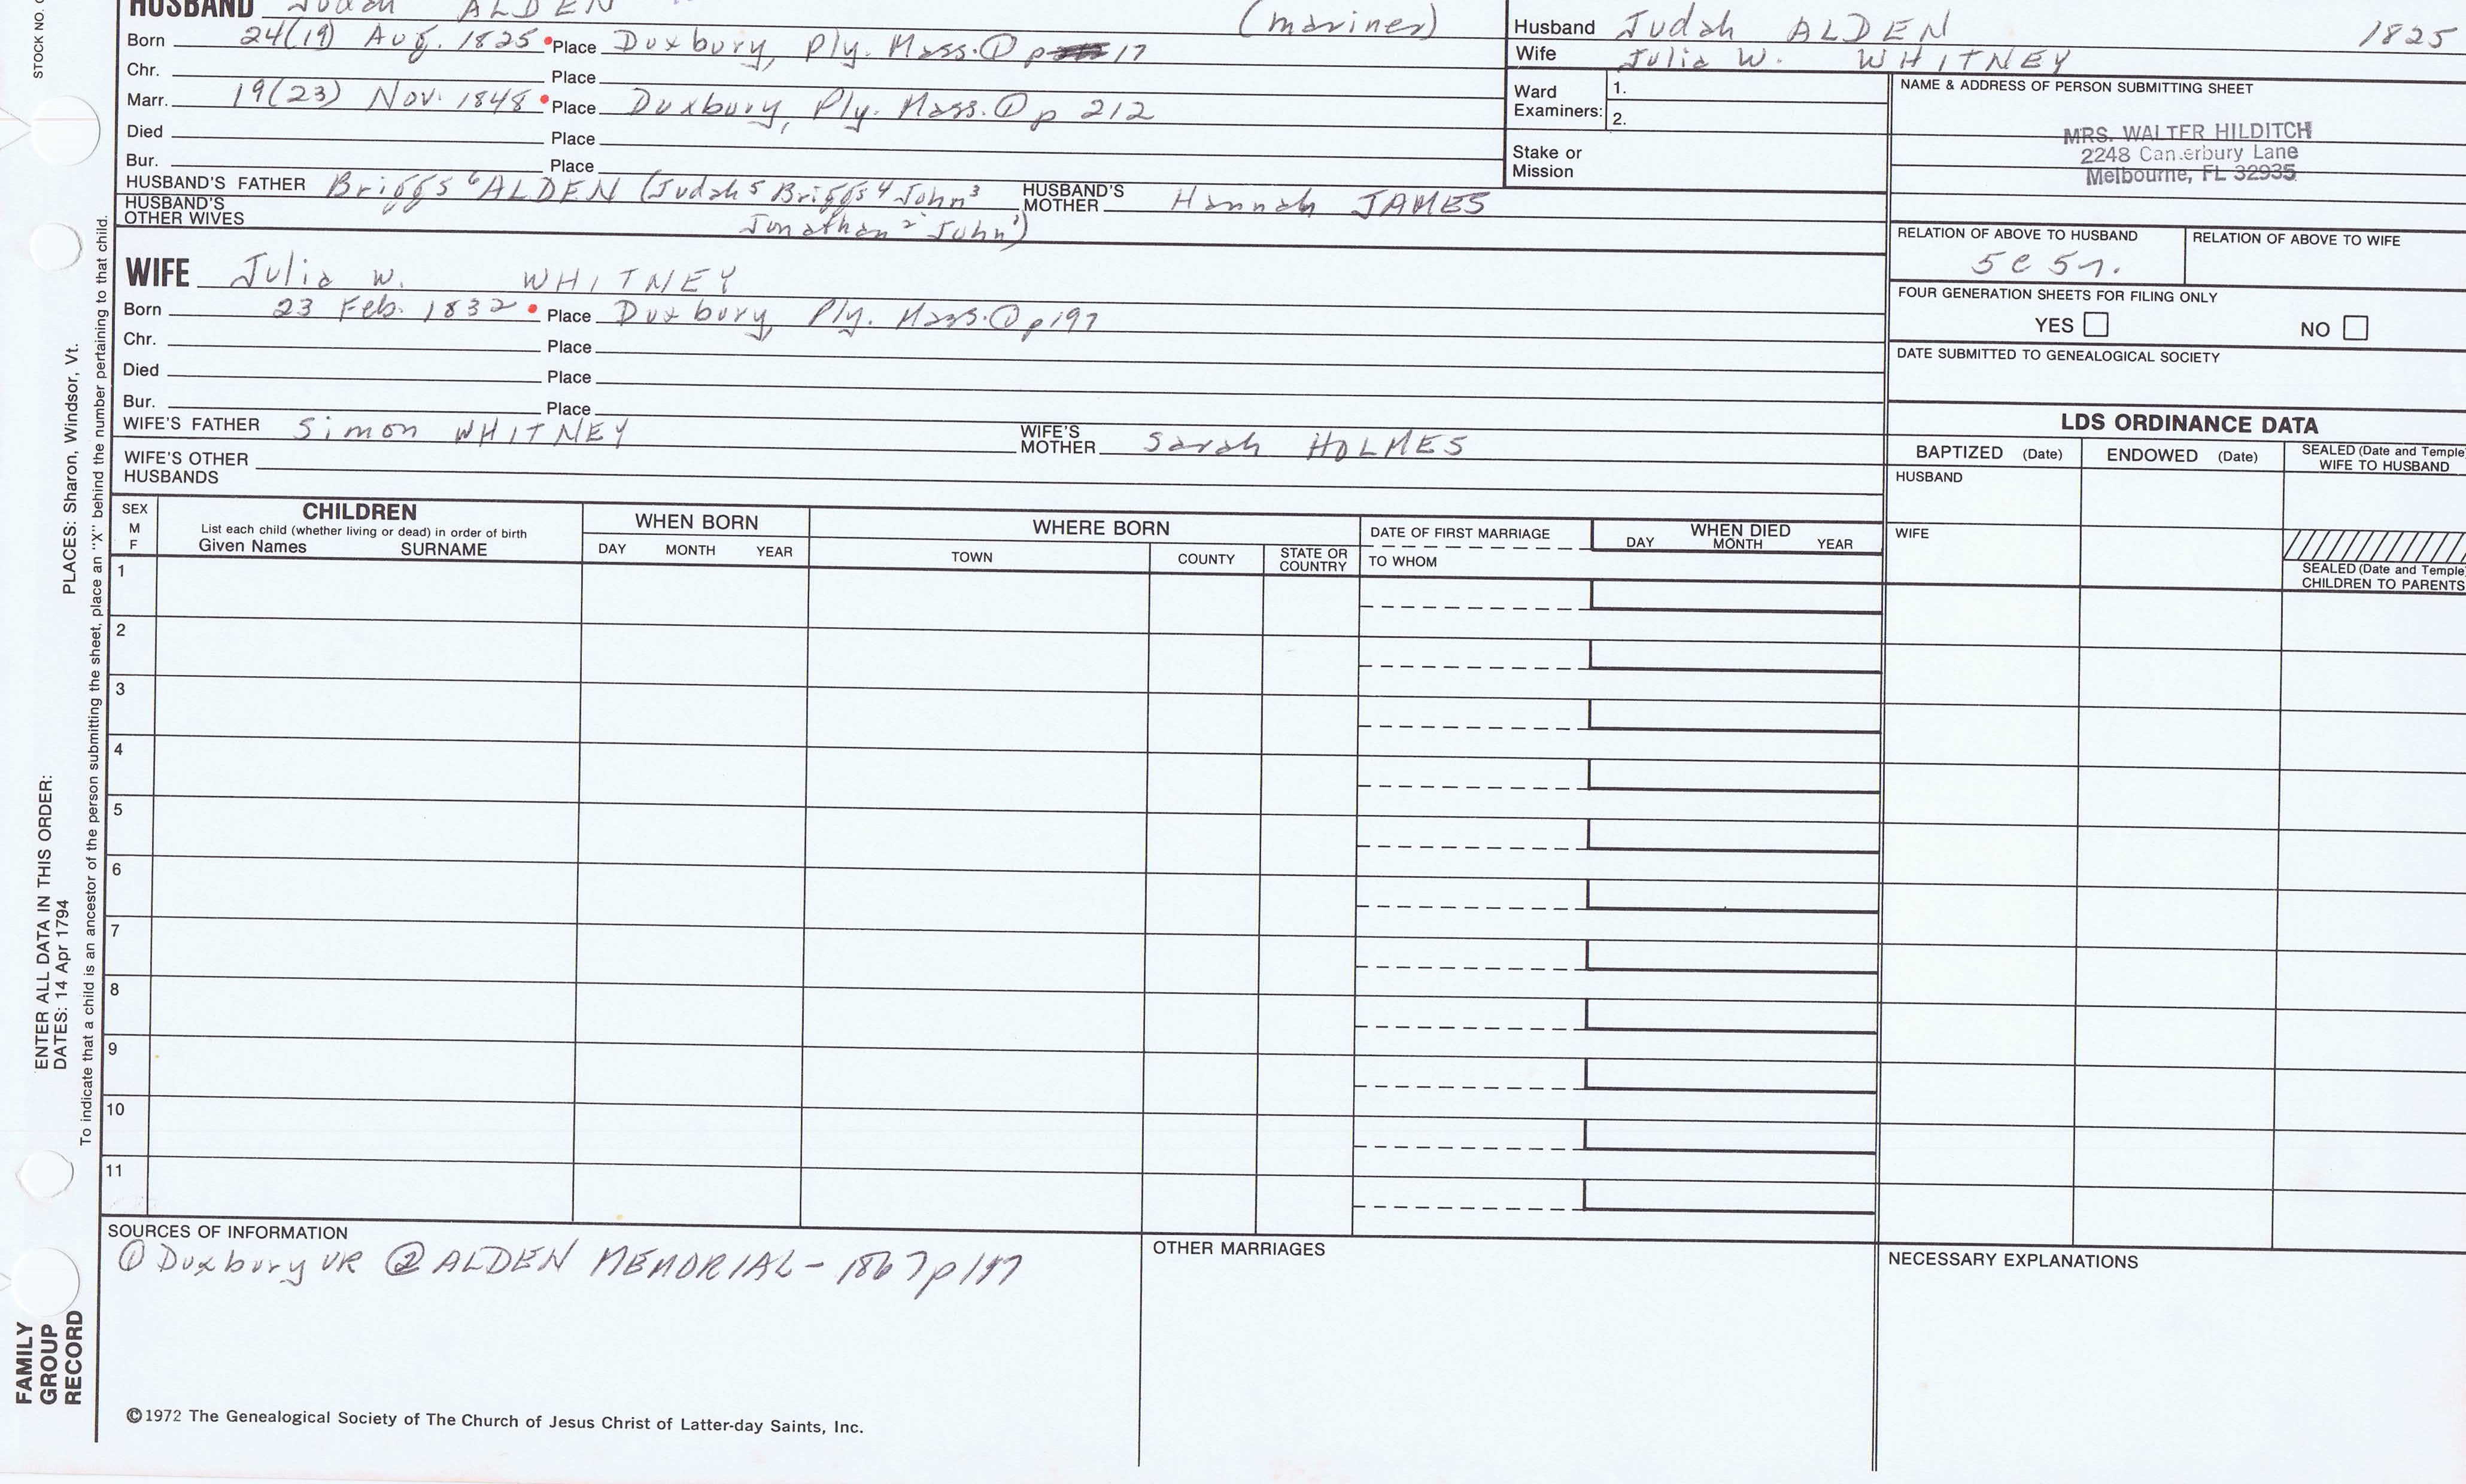 HUSBAND Judah ALDEN (mariner)
Born 24(19) Aug. 1825 Place Duxbury, Ply. Mass. ① p 17
Chr. Place
Marr. 19(23) Nov. 1848 Place Duxbury, Ply. Mass. ① p 212
Died Place
Bur. Place
HUSBAND'S FATHER Briggs⁶ ALDEN (Judah⁵ Briggs⁴ John³ HUSBAND'S MOTHER Hannah JAMES
HUSBAND'S OTHER WIVES Jonathan² John¹)
WIFE Julia W. WHITNEY
Born 23 Feb. 1832 Place Duxbury, Ply. Mass. ① p197
Chr. Place
Died Place
Bur. Place
WIFE'S FATHER Simon WHITNEY WIFE'S MOTHER Sarah HOLMES
WIFE'S OTHER HUSBANDS
Husband Judah ALDEN 1825
Wife Julia W. WHITNEY
Ward Examiners: 1.
2.
Stake or Mission
NAME & ADDRESS OF PERSON SUBMITTING SHEET
MRS. WALTER HILDITCH
2248 Can.erbury Lane
Melbourne, FL 32935
RELATION OF ABOVE TO HUSBAND RELATION OF ABOVE TO WIFE
5c 5r.
FOUR GENERATION SHEETS FOR FILING ONLY
YES NO
DATE SUBMITTED TO GENEALOGICAL SOCIETY
LDS ORDINANCE DATA
BAPTIZED (Date) ENDOWED (Date) SEALED (Date and Temple
WIFE TO HUSBAND
HUSBAND
WIFE
SEALED (Date and Temple
CHILDREN TO PARENTS
SEX
M
F
CHILDREN
List each child (whether living or dead) in order of birth
Given Names SURNAME
WHEN BORN
DAY MONTH YEAR
WHERE BORN
TOWN COUNTY STATE OR COUNTRY
DATE OF FIRST MARRIAGE
TO WHOM
WHEN DIED
DAY MONTH YEAR
1
2
3
4
5
6
7
8
9
10
11
SOURCES OF INFORMATION
① Duxbury VR ② ALDEN MEMORIAL - 1867 p 197
OTHER MARRIAGES
NECESSARY EXPLANATIONS
©1972 The Genealogical Society of The Church of Jesus Christ of Latter-day Saints, Inc.
STOCK NO.
PLACES: Sharon, Windsor, Vt.
ENTER ALL DATA IN THIS ORDER:
DATES: 14 Apr 1794
To indicate that a child is an ancestor of the person submitting the sheet, place an "X" behind the number pertaining to that child.
FAMILY
GROUP
RECORD